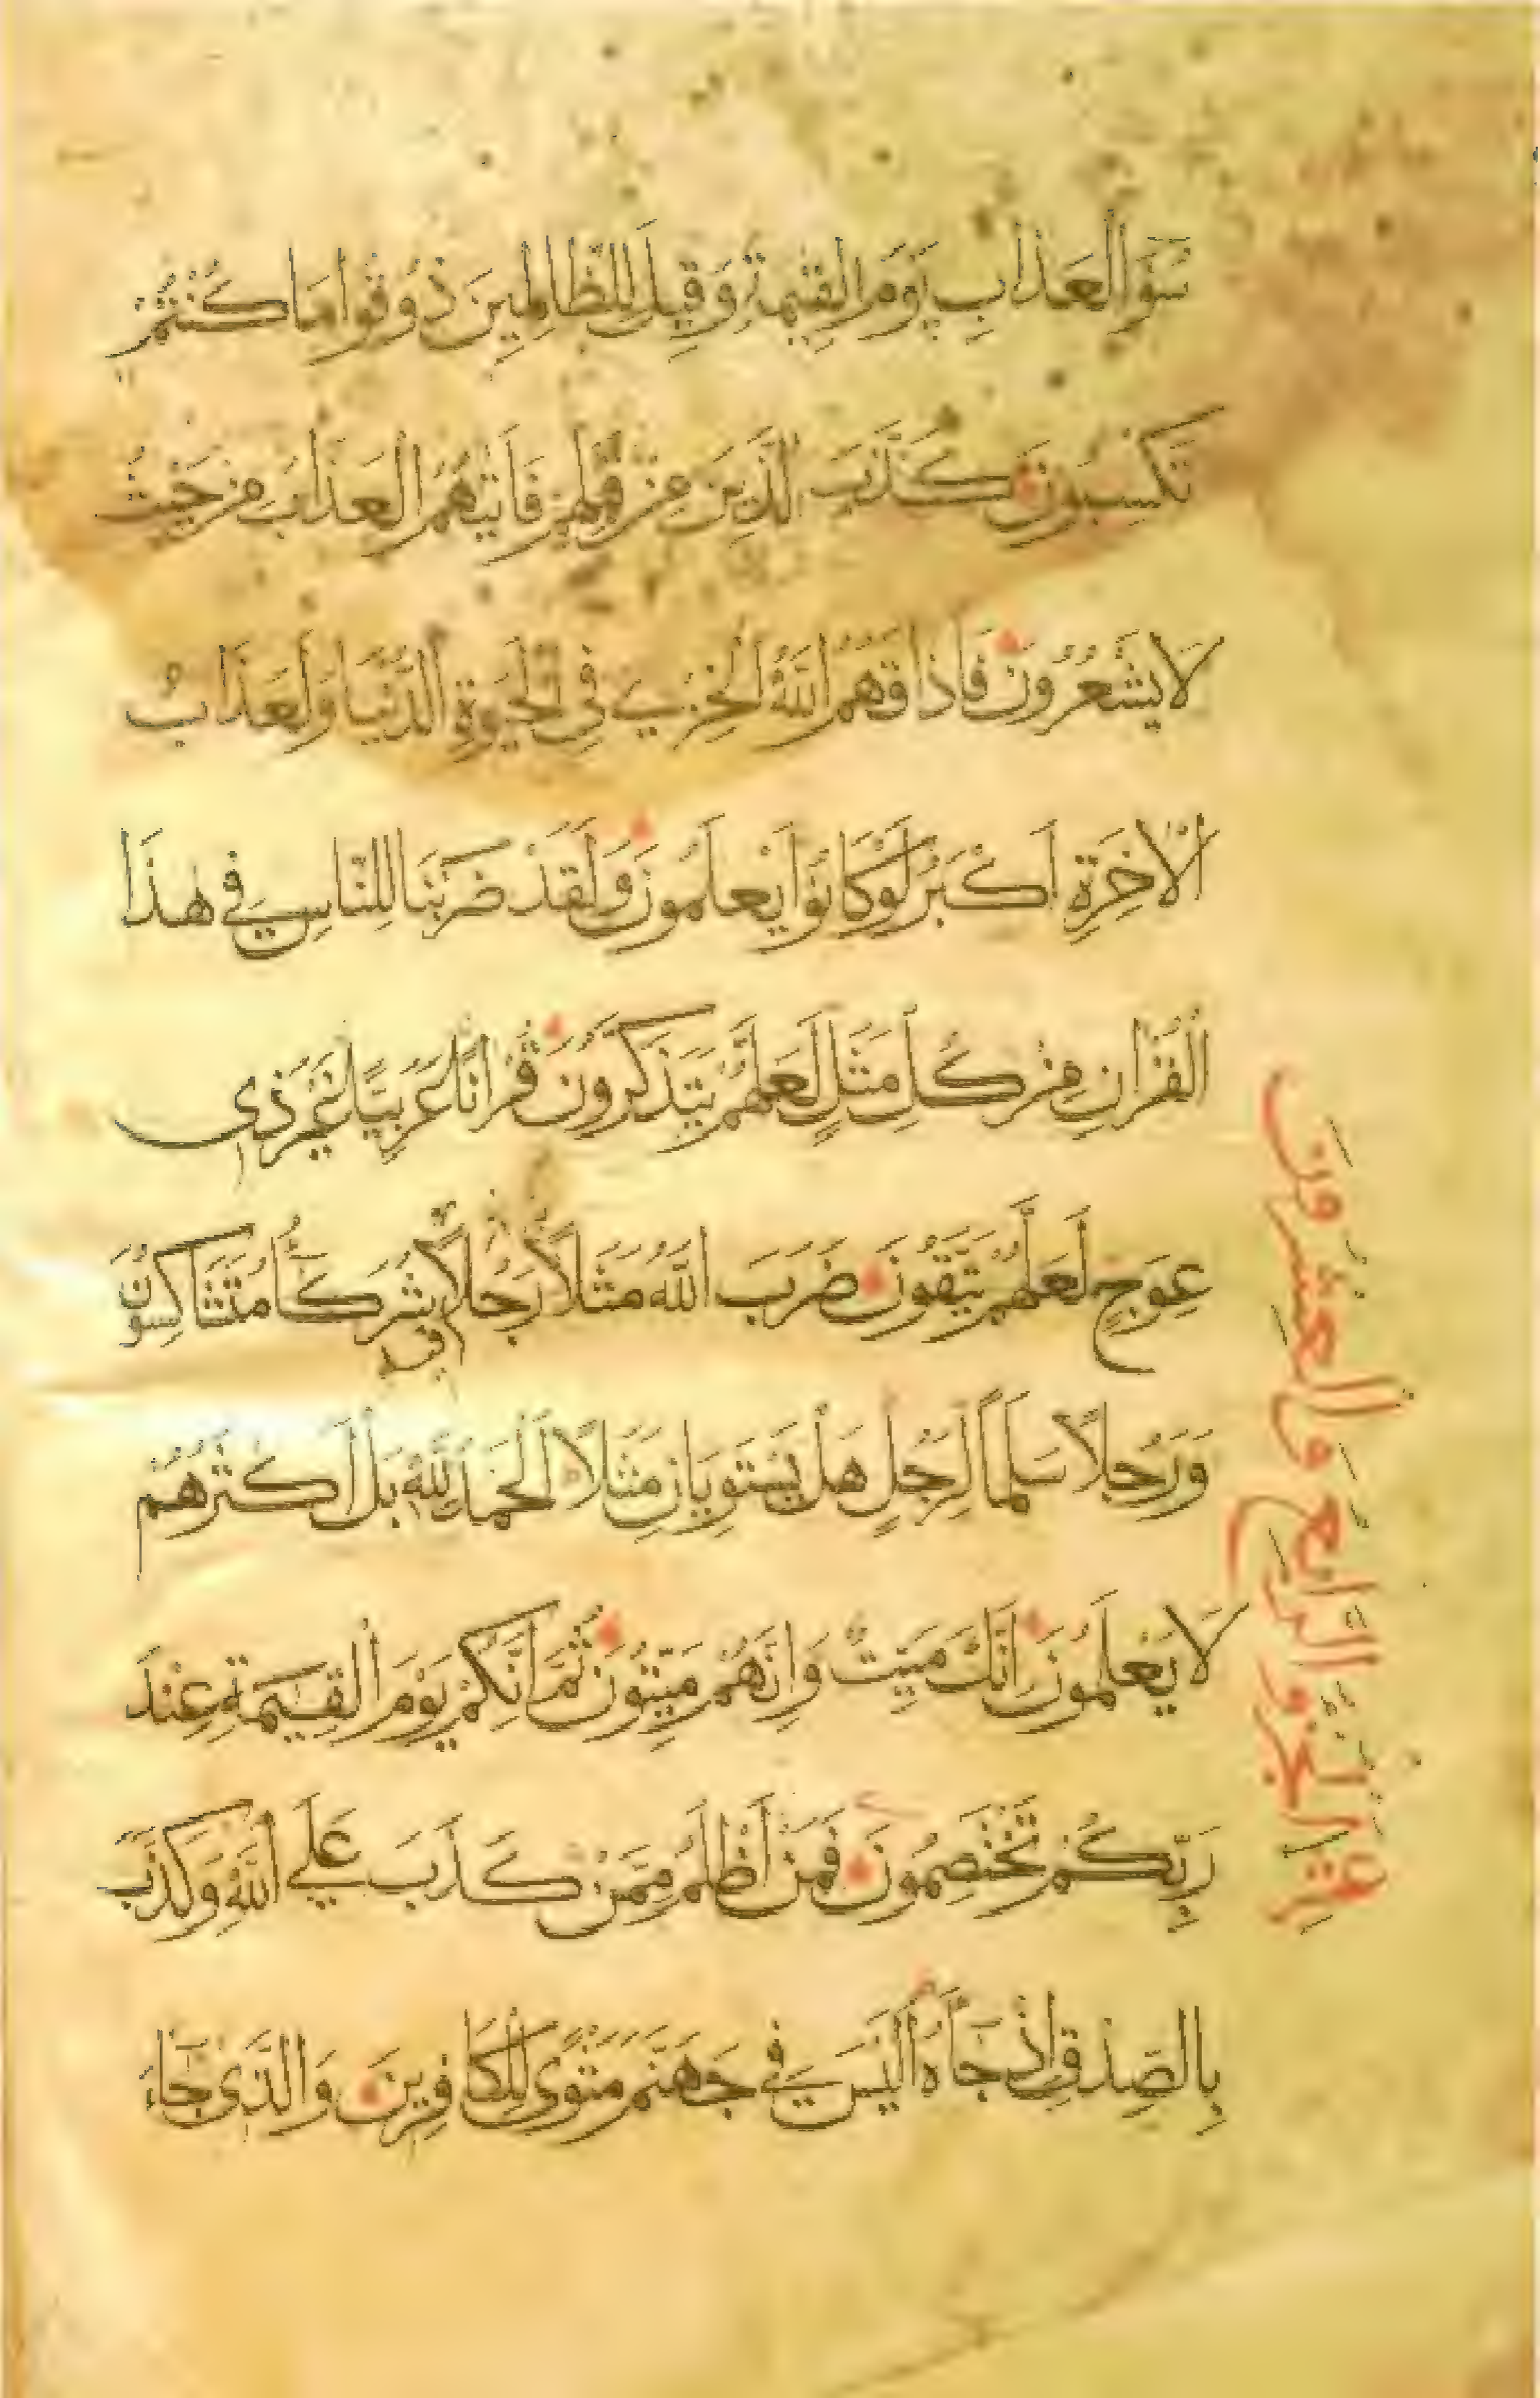 سُوٓءَ الْعَذَابِ يَوْمَ الْقِيٰمَةِ وَقِيلَ لِلظَّالِمِينَ ذُوقُوا مَا كُنْتُمْ
تَكْسِبُونَ كَذَّبَ الَّذِينَ مِنْ قَبْلِهِمْ فَاَتٰيهُمُ الْعَذَابُ مِنْ حَيْثُ
لَا يَشْعُرُونَ فَاَذَاقَهُمُ اللّٰهُ الْخِزْيَ فِي الْحَيٰوةِ الدُّنْيَا وَلَعَذَابُ
الْاٰخِرَةِ اَكْبَرُ لَوْ كَانُوا يَعْلَمُونَ وَلَقَدْ ضَرَبْنَا لِلنَّاسِ فِي هٰذَا
الْقُرْاٰنِ مِنْ كُلِّ مَثَلٍ لَعَلَّهُمْ يَتَذَكَّرُونَ قُرْاٰنًا عَرَبِيًّا غَيْرَ ذِي
عِوَجٍ لَعَلَّهُمْ يَتَّقُونَ ضَرَبَ اللّٰهُ مَثَلًا رَجُلًا فِيهِ شُرَكَآءُ مُتَشَاكِسُونَ
وَرَجُلًا سَلَمًا لِرَجُلٍ هَلْ يَسْتَوِيَانِ مَثَلًا الْحَمْدُ لِلّٰهِ بَلْ اَكْثَرُهُمْ
لَا يَعْلَمُونَ اِنَّكَ مَيِّتٌ وَاِنَّهُمْ مَيِّتُونَ ثُمَّ اِنَّكُمْ يَوْمَ الْقِيٰمَةِ عِنْدَ
رَبِّكُمْ تَخْتَصِمُونَ فَمَنْ اَظْلَمُ مِمَّنْ كَذَبَ عَلَى اللّٰهِ وَكَذَّبَ
بِالصِّدْقِ اِذْ جَآءَهُ اَلَيْسَ فِي جَهَنَّمَ مَثْوًى لِلْكَافِرِينَ وَالَّذِي جَآءَ
الجزو الرابع والعشرون